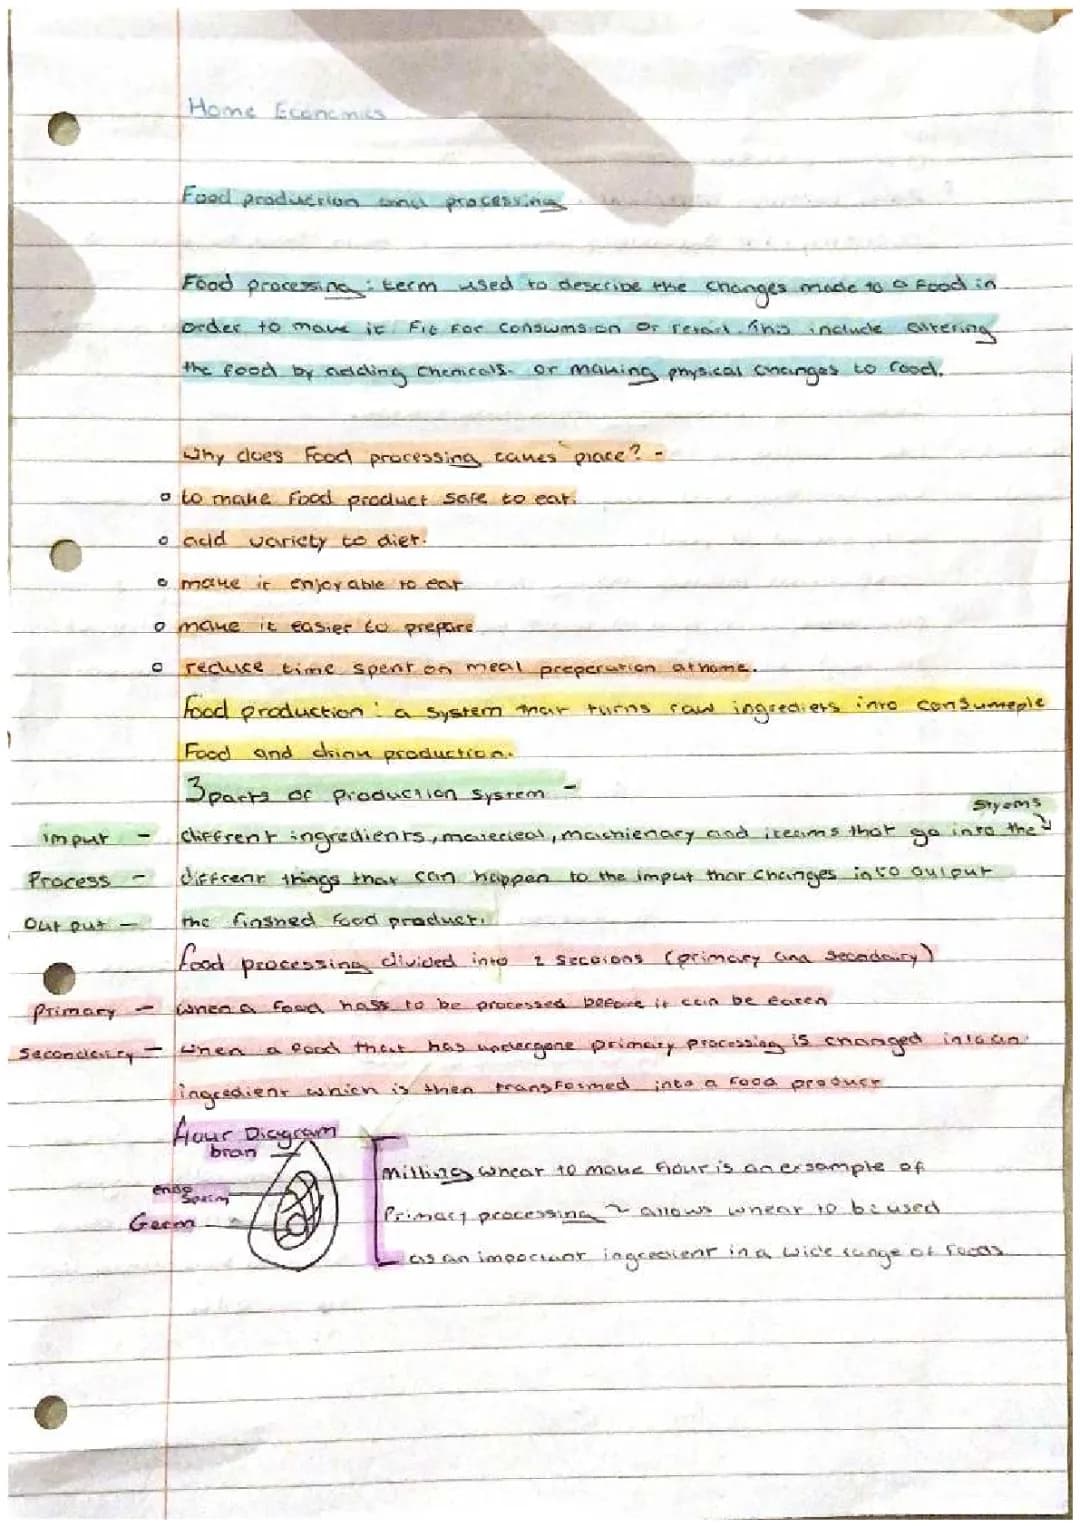 Home Economics
Food production and processing
Food processing : term used to describe the changes made to a food in
order to make it fit for consumsion or retail. This include altering
the food by adding chemicals. or making physical changes to food.
Why does food processing takes place? -
to make food product safe to eat.
add variety to diet.
make it enjoyable to eat
make it easier to prepare
reduce time spent on meal preperation at home.
food production : a system that turns raw ingrediets into consumeple
food and drink production.
3 parts of production system -
imput - diffrent ingredients, matecieal, machienary and iteams that go into the styems
Process - diffrent things that can happen to the imput that changes into output
Out put - the finshed food product.
food processing divided into 2 secoions (primary and secondairy)
Primary - when a food hass to be processed before it can be eaten
Secondairy - when a food that has undergone primary processing is changed into an
ingredient which is then transformed into a food product
flour Diagram
bran
endosperm
Germ
Milling wheat to make flour is an exsample of
Primary processing ~ allows wheat to be used
as an important ingredient in a wide range of foods